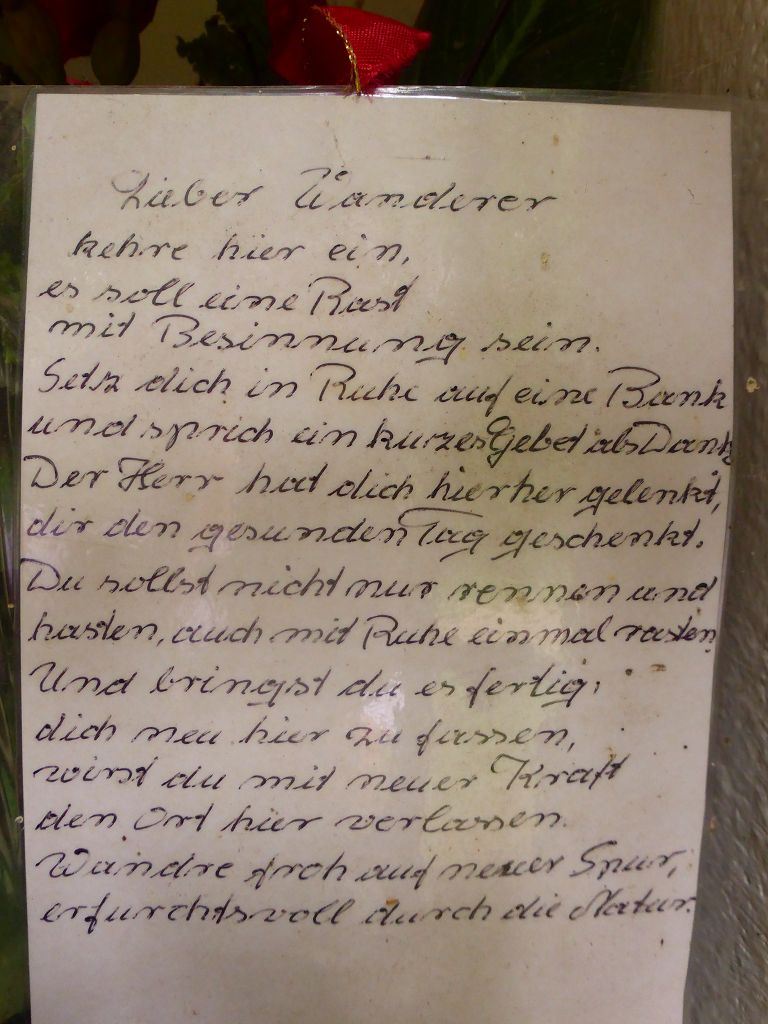 Lieber Wanderer
kehre hier ein,
es soll eine Rast
mit Besinnung sein.
Setz dich in Ruhe auf eine Bank
und sprich ein kurzes Gebet als Dank
Der Herr hat dich hierher gelenkt,
dir den gesunden Tag geschenkt.
Du sollst nicht nur rennen und
hasten, auch mit Ruhe einmal rasten
Und bringst du es fertig:
dich neu hier zu fassen,
wirst du mit neuer Kraft
den Ort hier verlassen.
Wandre froh auf neuer Spur,
erfurchtsvoll durch die Natur.